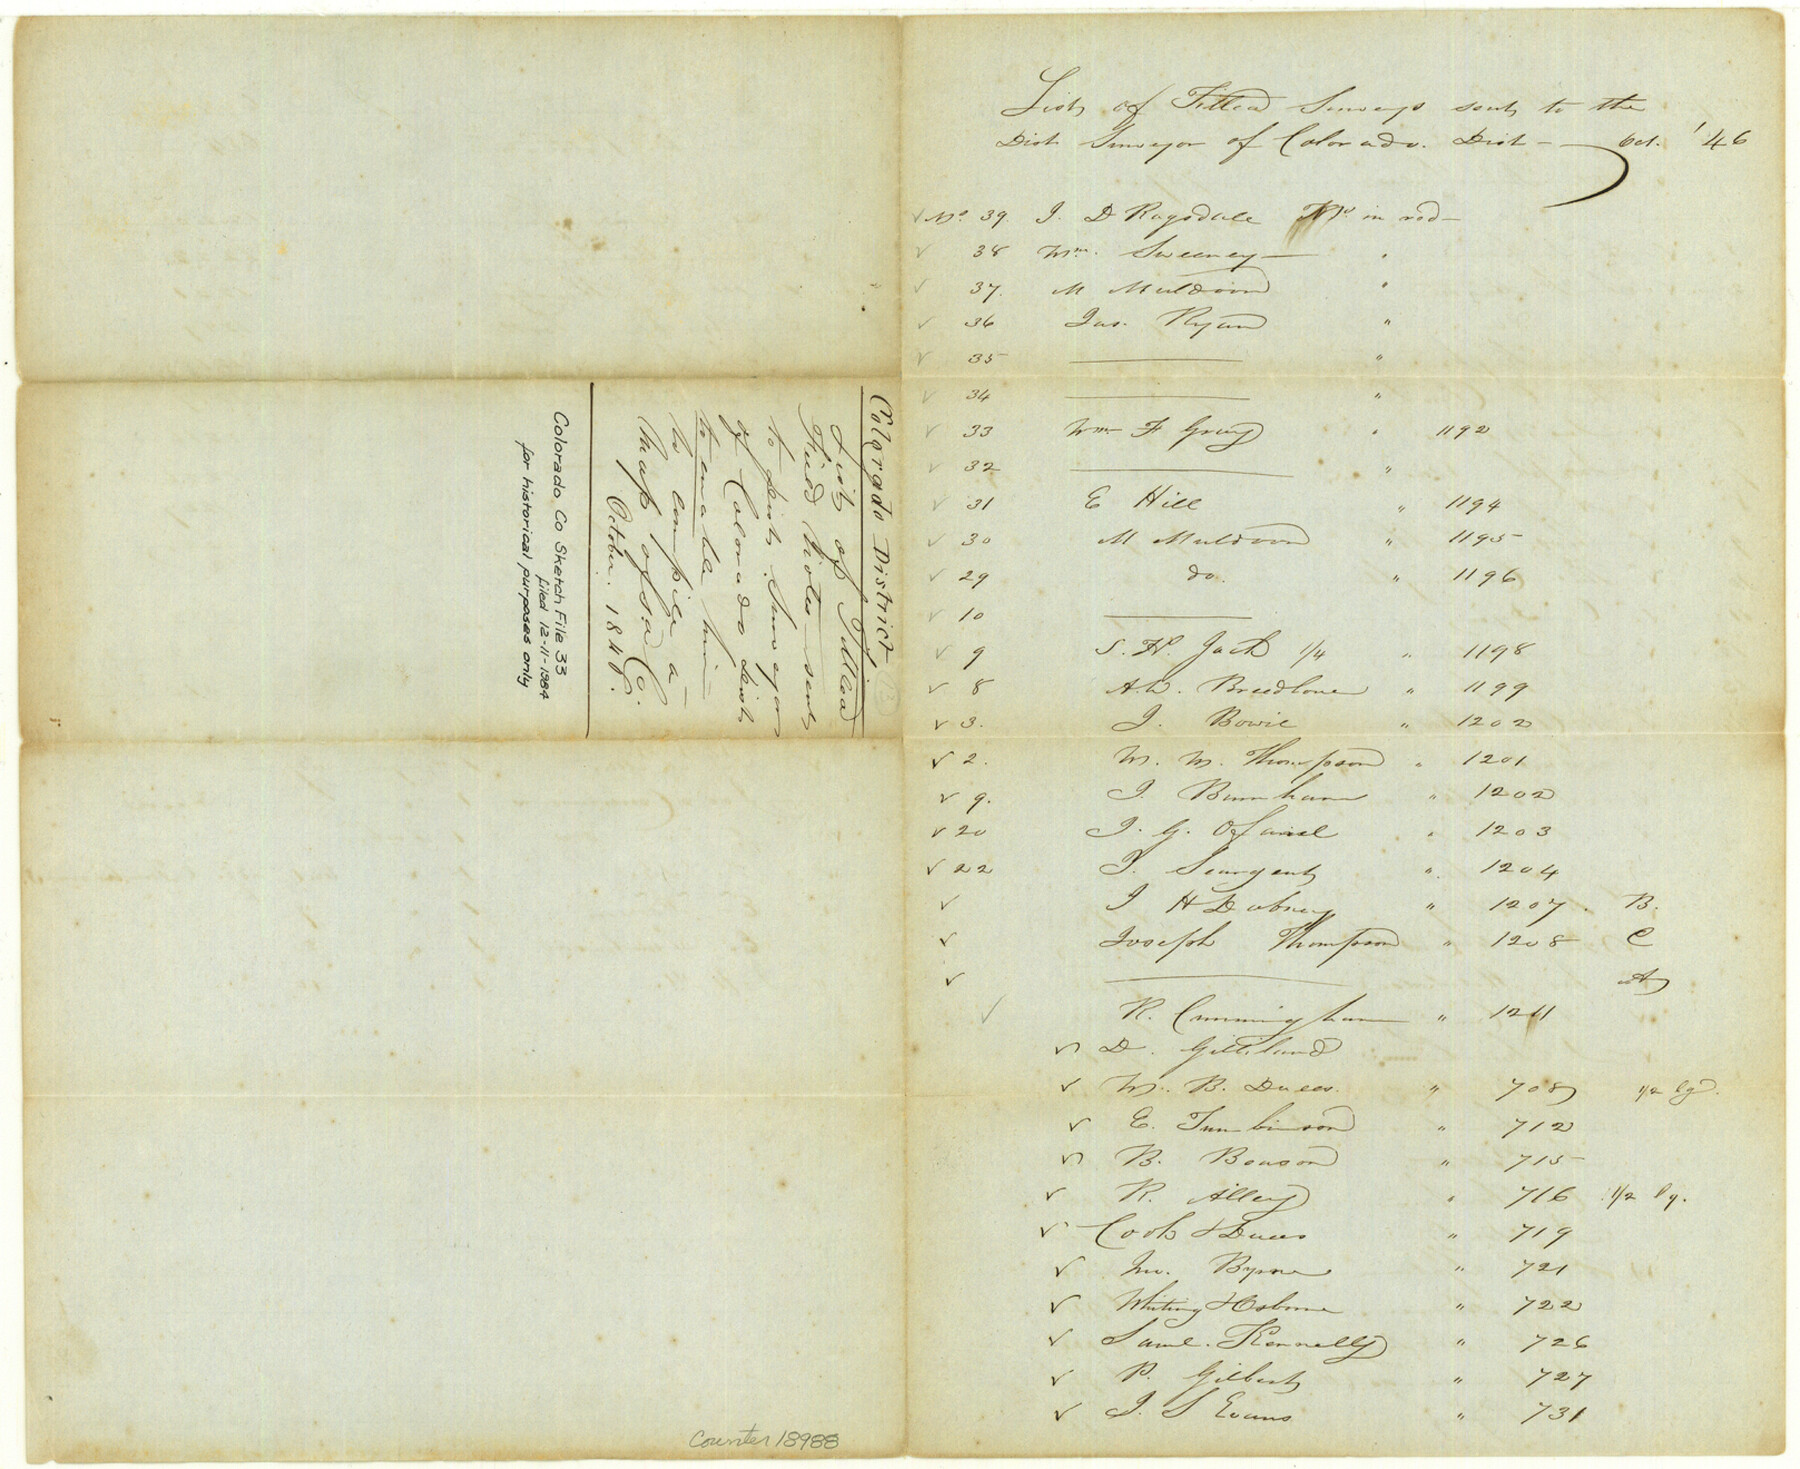 Colorado District
List of Titled
Field Notes sent
to Dist. Surveyor
of Colorado Dist
to enable him
to compile a
Map of sd Co.
October. 1846.
Colorado Co Sketch File 33
filed 12-11-1984
for historical purposes only
Counter 18988
List of Titled Surveys sent to the
Dist Surveyor of Colorado. Dist — Oct. '46
✓ No. 39. J. D Ragsdale No. in red —
✓ 38 Wm. Sweeney — "
✓ 37. M Muldoon "
✓ 36 Jas. Ryan "
✓ 35 — "
✓ 34 — "
✓ 33 Wm F Gray " 1192
✓ 32 — "
✓ 31 E Hill " 1194
✓ 30 M Muldoon " 1195
✓ 29 do. " 1196
✓ 10 —
✓ 9 S. H. Jack 1/4 " 1198
✓ 8 A. W. Breedlove " 1199
✓ 3. J. Bowie " 1202
✓ 2. W. W. Thompson " 1201
✓ 9. J. Burnham " 1202
✓ 20 J. G. " 1203
✓ 22 Seargent " 1204
✓ J H Dabney " 1207. B.
✓ Joseph Thompson " 1208 C
✓ — A
✓ R. Cunningham " 1211
✓ D. Gilleland
✓ W. B. Dewees " 708 1/2 lg.
✓ E. Tumlinson " 712
✓ B. Beason " 715
✓ R. Alley " 716 1/2 lg.
✓ Cook & Dewees " 719
✓ Byrne " 721
✓ Whiting & Osborne " 722
✓ Saml. Kennelly " 726
✓ P. Gilbert " 727
✓ J. S Evans " 731